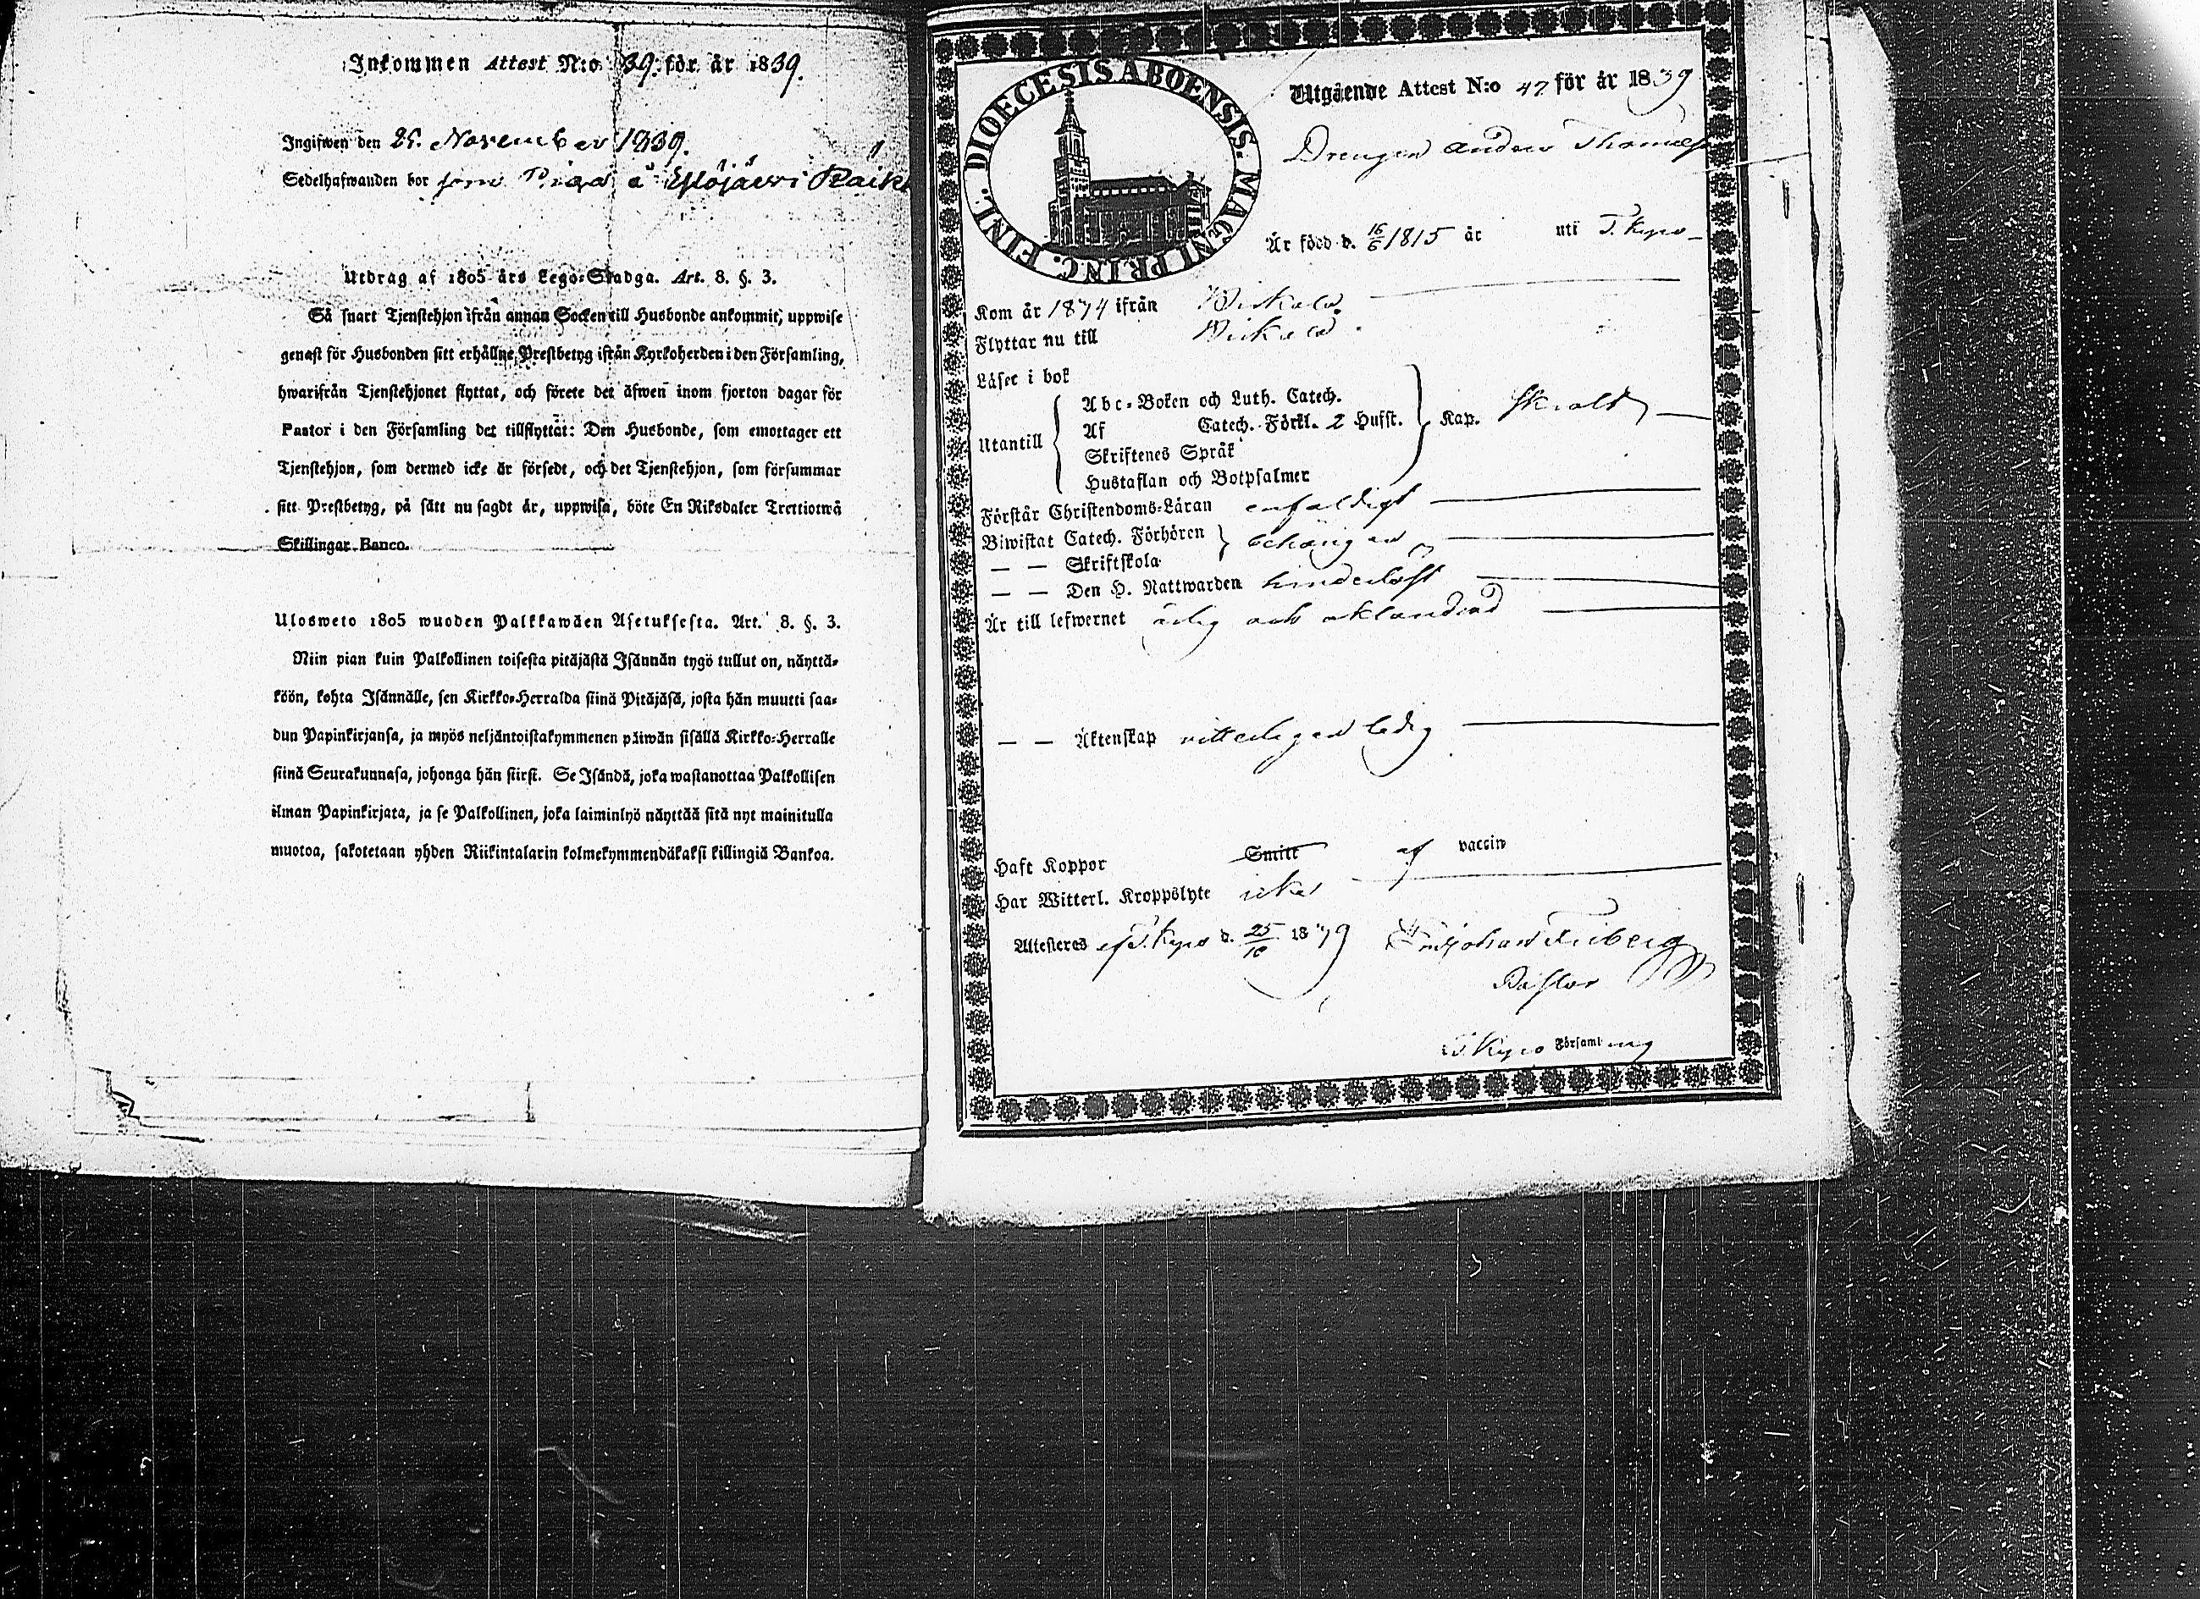 Inkommen Attest N:o 39. för år 1839.
Ingifwen den 25. November 1839.
Sedelhafwanden bor som Piga å Ylöjärvi Räik
Utdrag af 1805 års Lego-Stadga. Art. 8. §. 3.
Så snart Tjenstehjon ifrån annan Socken till Husbonde ankommit, uppwise
genast för Husbonden sitt erhållne Prestbetyg ifrån Kyrkoherden i den Församling,
hwarifrån Tjenstehjonet flyttat, och förete det äfwen inom fjorton dagar för
Pastor i den Församling det tillflyttat: Den Husbonde, som emottager ett
Tjenstehjon, som dermed icke är försedt, och det Tjenstehjon, som försummar
sitt Prestbetyg, på sätt nu sagdt är, uppwisa, böte En Riksdaler Trettiotwå
Skillingar Banco.
Ulosweto 1805 wuoden Palkkawäen Asetuksesta. Art. 8. §. 3.
Niin pian kuin Palkollinen toisesta pitäjästä Isännän tygö tullut on, näyttä-
köön, kohta Isännälle, sen Kirkko-Herralda siinä Pitäjäsä, josta hän muutti saa-
dun Papinkirjansa, ja myös neljäntoistakymmenen päiwän sisällä Kirkko-Herralle
siinä Seurakunnasa, johonga hän siirsi. Se Isändä, joka wastanottaa Palkollisen
ilman Papinkirjata, ja se Palkollinen, joka laiminlyö näyttää sitä nyt mainitulla
muotoa, sakotetaan yhden Riikintalarin kolmekymmendäkaksi killingiä Bankoa.
DIOECESIS ABOENSIS. MAGNI PRINC. FINL.
Utgående Attest N:o 47 för år 1839
Drengen Anders Thomass
Är född d. 16/6 1815 år uti T. Kyro
Kom år 1834 ifrån
Flyttar nu till
Läser i bok
Abc-Boken och Luth. Catech.
Utantill Af Catech. Förkl. 2 Hufst. Kap.
Skriftenes Språk
Hustaflan och Botpsalmer
Förstår Christendoms-Läran enfaldigt
Biwistat Catech. Förhören
— — Skriftskola
— — Den H. Nattwarden hinderlöst
Är till lefwernet ärlig och oklandrad
— — Äktenskap vitterligen ledig
Haft Koppor Smitt af vaccin
Har Witterl. Kroppslyte icke
Attesteras af T. Kyro d. 25/10 1839 Johan Friberg
Pastor
T. Kyro Församling